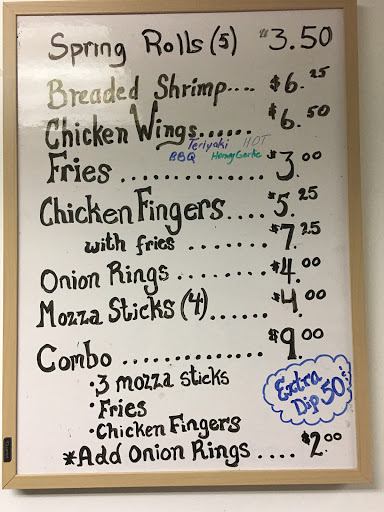 Spring Rolls (5) $3.50
Breaded Shrimp.... $6.25
Chicken Wings...... $6.50
Teriyaki HOT
BBQ Honey Garlic
Fries ............ $3.00
Chicken Fingers.... $5.25
with fries ....... $7.25
Onion Rings ........ $4.00
Mozza Sticks (4)...... $4.00
Combo .............. $9.00
• 3 mozza sticks
• Fries
• Chicken Fingers
Extra
Dip 50¢
*Add Onion Rings .... $2.00